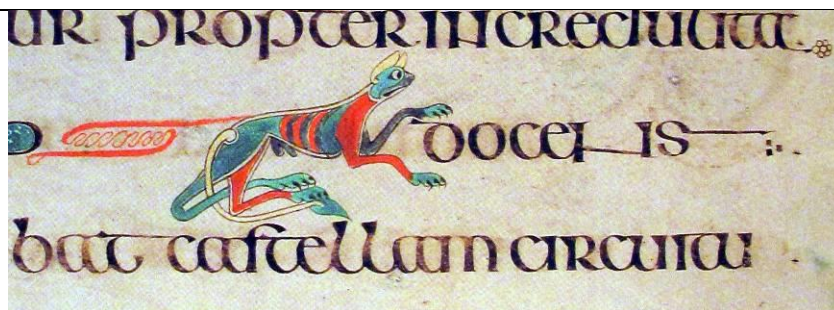 ur propter incredulita
docens
bat castella in circuitu